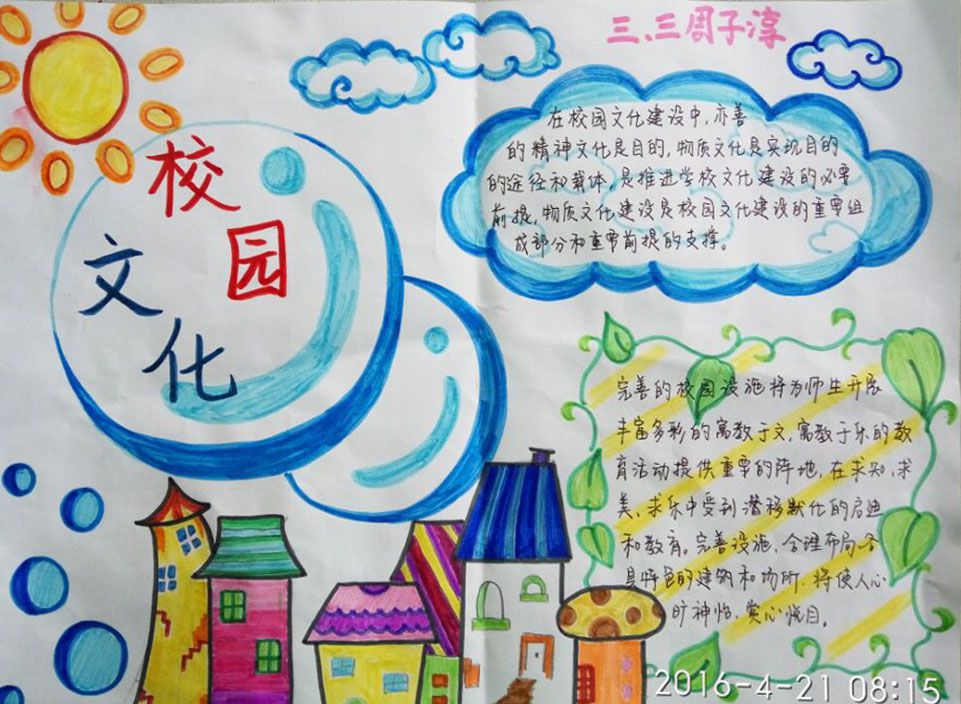 三、三周子淳
校园
文化
在校园文化建设中,亦善
的精神文化是目的,物质文化是实现目的
的途径和载体,是推进学校文化建设的必要
前提,物质文化建设是校园文化建设的重要组
成部分和重要前提的支撑。
完善的校园设施将为师生开展
丰富多彩的寓教于文,寓教于乐的教
育活动提供重要的阵地,在求知、求
美、求乐中受到潜移默化的启迪
和教育。完善设施、合理布局、各
具特色的建筑和场所,将使人心
旷神怡,赏心悦目。
2016-4-21 08:15